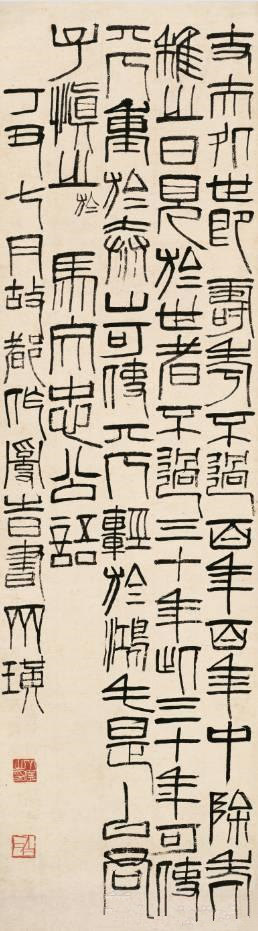 丈夫処世即壽考不過百年百年中除老
稚之日見於世者不過三十年此三十年可使
亓人重於泰山可使亓人輕於鴻毛是以君
子慎之 馬文忠公語
於
丁丑七月故都 書 璜